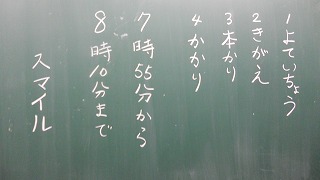 1よていちょう
2きがえ
3本かり
4かかり
7時55分から
8時10分まで
スマイル